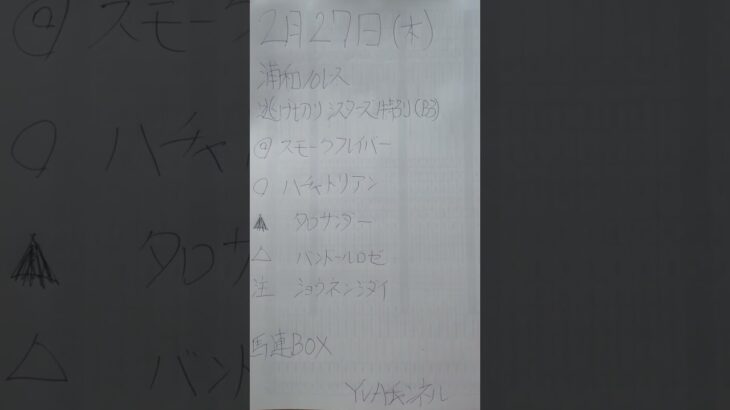 2月27日(木)
浦和10レース
逃げ切りシスターズ特別(B3)
◎ スモークフレイバー
○ ハチャトリアン
▲ タロサンダー
△ バンドールロゼ
注 ショウネンジダイ
馬連BOX
YUAチャンネル